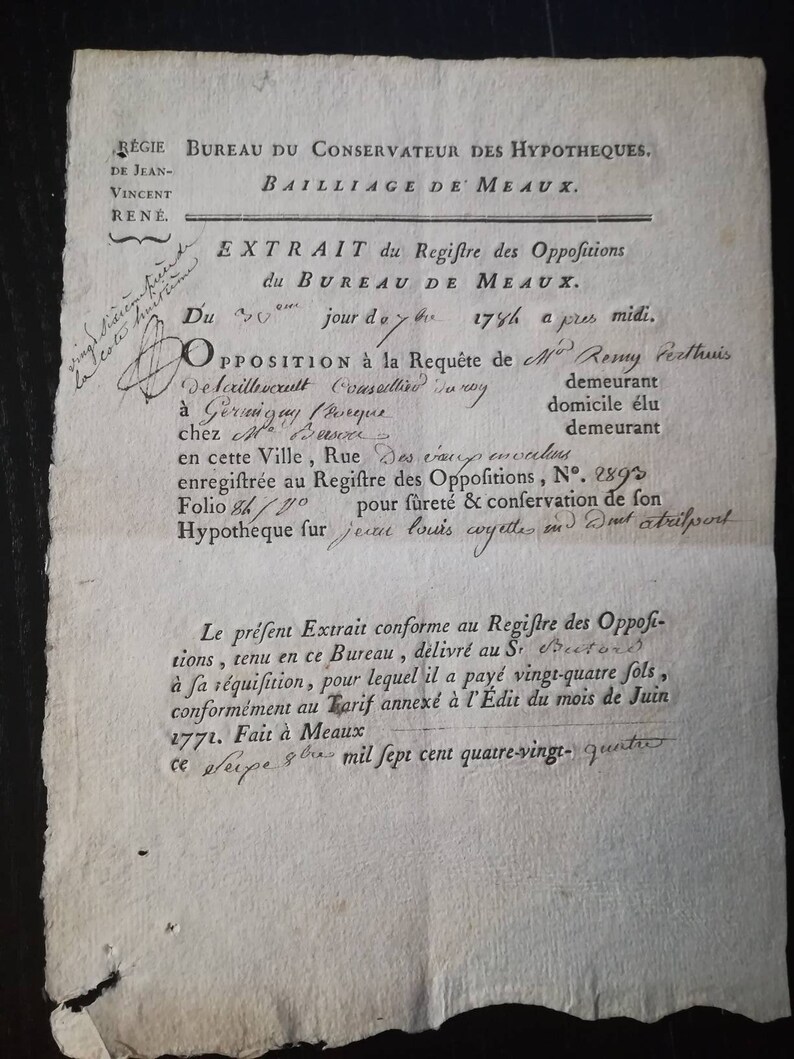 RÉGIE
DE JEAN-
VINCENT
RENÉ.
BUREAU DU CONSERVATEUR DES HYPOTHEQUES.
BAILLIAGE DE MEAUX.
EXTRAIT du Regiſtre des Oppoſitions
du BUREAU DE MEAUX.
vingt sixieme piece de
la cote huitieme
Du 30eme jour de 7bre 1784 apres midi.
OPPOSITION à la Requête de Md Remy Perthuis
Conseiller du roy demeurant
à Germigny l'Eveque domicile élu
chez Me demeurant
en cette Ville, Rue Des vieux moulins
enregiſtrée au Regiſtre des Oppoſitions, N°. 2893
Folio 84 / Vo pour ſûreté & conſervation de ſon
Hypotheque ſur jean louis md dmt a trilport
Le préſent Extrait conforme au Regiſtre des Oppoſi-
tions, tenu en ce Bureau, délivré au Sr
à ſa réquiſition, pour lequel il a payé vingt-quatre ſols,
conformément au Tarif annexé à l'Édit du mois de Juin
1771. Fait à Meaux
ce Seize 8bre mil ſept cent quatre-vingt- quatre